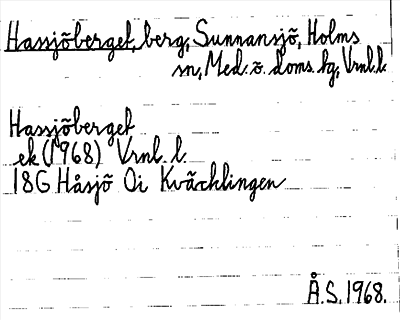 Hassjöberget, berg, Sunnansjö, Holms
sn, Med. ö. doms. tg, Vrnl. l.
Hassjöberget
ek (1968) Vrnl. l.
18G Håsjö Oi Kväcklingen
Å.S. 1968.